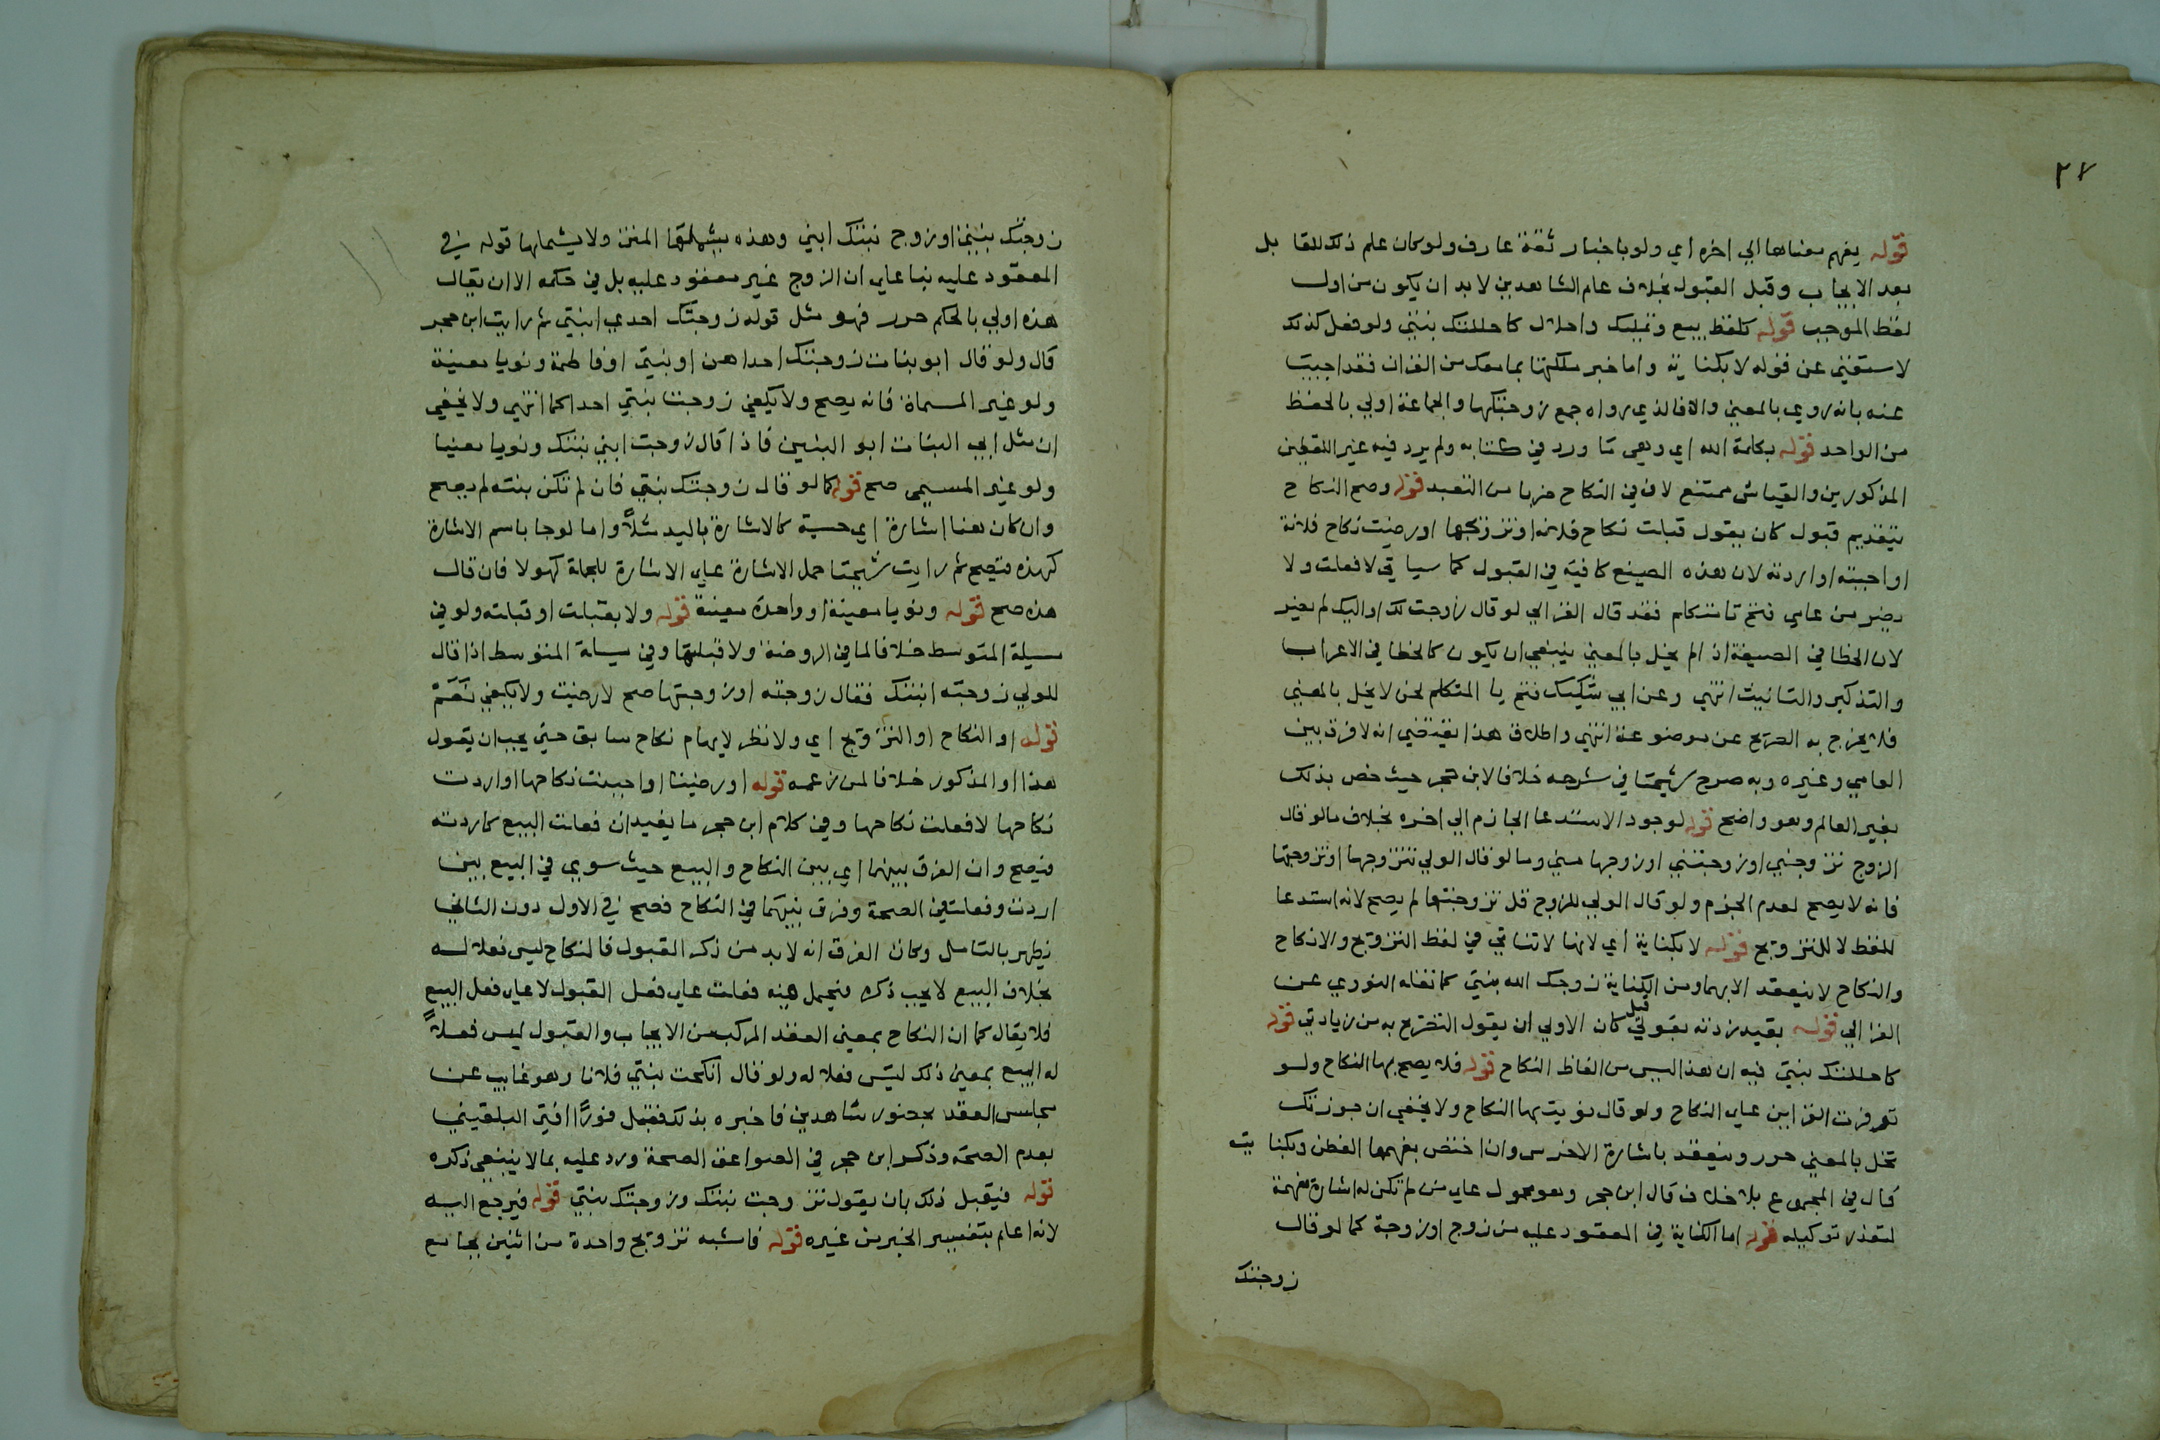 ٢٧
قوله يفهم معناها الي اخره اي ولو باخبار ثقة عارف ولو كان علم ذلك للقابل
بعد الايجاب وقبل القبول بخلاف علم الشاهدين لا بد ان يكون من اول
لفظ الموجب قوله كلفظ بيع وتمليك واحلال كاحللتك بنتي ولو فعل كذلك
لاستغني عن قوله لا بكناية واما خبر ملكتها بما معك من القران فقد اجيب
عنه بانه روي بالمعني والا فالذي رواه جمع زوجتكها والجماعة اولي بالحفظ
من الواحد قوله بكلمة الله اي وهي ما ورد في كتابه ولم يرد فيه غير اللفظين
المذكورين والقياس ممتنع لان في النكاح ضربا من التعبد قوله وصح النكاح
بتقديم قبول كان يقول قبلت نكاح فلانه او تزوجها او رضيت نكاح فلانة
او احببته او اردته لان هذه الصيغ كافية في القبول كما سياتي لا فعلت ولا
يضر من عامي فتح تا متكلم فقد قال الغزالي لو قال زوجت لك او اليك لم يضر
لان الخطا في الصيغة اذا لم يخل بالمعني ينبغي ان يكون كالخطا في الاعراب
والتذكير والتانيث انتهي وعن ابي شكيل فتح يا المتكلم لحن لا يخل بالمعني
فلا يخرج به الصريح عن موضوعة انتهي واطلاق هذا يقتضي انه لا فرق بين
العامي وغيره وبه صرح شيخنا في شرحه خلافا لابن حجر حيث خص بذلك
بغير العالم وهو واضح قوله لوجود الاستدعا الجازم الي اخره بخلاف ما لو قال
الزوج تزوجني او زوجتني او زوجها مني وما لو قال الولي تتزوجها او تزوجتها
فانه لا يصح لعدم الجزم ولو قال الولي للزوج قل تزوجتها لم يصح لانه استدعا
للفظ لا للتزويج قوله لا بكناية اي لانها لا تتاتي في لفظ التزويج والانكاح
والنكاح لا ينعقد الا بهما ومن الكناية زوجك الله بنتي كما نقله النوري عن
الغزالي قوله بقيد زدته بقولي قبل كان الاولي ان يقول التصريح به من زيادتي قوله
كاحللتك بنتي فيه ان هذا ليس من الفاظ النكاح قوله فلا يصح بها النكاح ولو
توفرت القراين علي النكاح ولو قال نويت بها النكاح ولا يخفي ان جوزتك
تخل بالمعني حرر وينعقد باشارة الاخرس وان اختص بفهمها الفطن وبكنايته
قال في المجموع بلا خلاف قال ابن حجر وهو محمول علي من لم تكن له اشارة مفهمة
لتعذر توكيله قوله اما الكناية في المعقود عليه من زوج او زوجة كما لو قال
زوجتك
زوجتك بنتي او زوج بنتك ابني وهذه يشملها المتن ولا يشملها قوله في
المعقود عليه بنا علي ان الزوج غير معقود عليه بل في حكمه الا ان يقال
هذه اولي بالحكم حرر فهو مثل قوله زوجتك احدي ابنتي ثم رايت ابن حجر
قال ولو قال ابو بنات زوجتك احداهن او بنتي او فاطمة ونويا معينة
ولو غير المسماة فانه يصح ولا يكفي زوجت بنتي احدكما انتهي ولا يخفي
ان مثل ابي البنات ابو البنين فاذا قال زوجت ابني بنتك ونويا معينا
ولو غير المسمي صح قوله كما لو قال زوجتك بنتي فان لم تكن بنته لم يصح
وان كان هنا اشارة اي حسية كالاشارة باليد مثلاً واما لو جا باسم الاشارة
كهذه فيصح ثم رايت شيخنا حمل الاشارة علي الاشارة للجملة كهولا فان قال
هذه صح قوله ونويا معينة او واحدة معينة قوله ولا بقبلت او قبلته ولو في
مسيلة المتوسط خلافا لما في الروضة ولا قبلتها وفي مسيلة المتوسط اذا قال
للولي زوجته ابنتك فقال زوجته او زوجتها صح لا رضيت ولا يكفي نَعَمْ
قوله او النكاح او التزويج اي ولا نظر لايهام نكاح سابق حتي يجب ان يقول
هذا او المذكور خلافا لمن زعمه قوله او رضينا او احببت نكاحها او اردت
نكاحها لا فعلت نكاحها وفي كلام ابن حجر ما يفيد ان فعلت البيع كاردته
فيصح وان الفرق بينهما اي بين النكاح والبيع حيث سوي في البيع بين
اردت وفعلت في الصحة وفرق بينهما في النكاح فصح في الاول دون الثاني
يظهر بالتامل وكان الفرق انه لا بد من ذكر القبول فالنكاح ليس فعلا له
بخلاف البيع لا يجب ذكره فيحمل فيه فعلت علي فعل القبول لا علي فعل البيع
فلا يقال كما ان النكاح بمعني العقد المركب من الايجاب والقبول ليس فعلاً
له البيع بمعني ذلك ليس فعلا له ولو قال انكحت بنتي فلانا وهو غايب عن
مجلس العقد بحضور شاهدين فاخبره بذلك فقبل فوراً افتي البلقيني
بعدم الصحة وذكر ابن حجر في الصواعق الصحة ورد عليه بما لا ينبغي ذكره
قوله فيقبل ذلك بان يقول تزوجت بنتك وزوجتك بنتي قوله فيرجع اليه
لانه اعلم بتفسير الخبر من غيره قوله فاشبه تزويج واحدة من اثنين بجامع